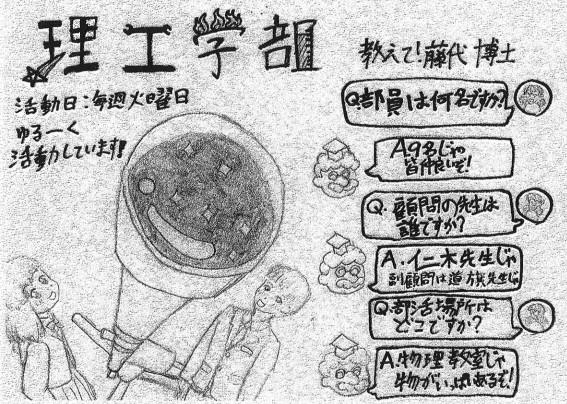 理工学部
活動日：毎週火曜日
ゆるーく
活動しています!
教えて!藤代博士
Q.部員は何名ですか?
A.9名じゃ
皆仲良いぞ!
Q.顧問の先生は
誰ですか?
A.仁木先生じゃ
副顧問は道方先生じゃ
Q.部活場所は
どこですか?
A.物理教室じゃ
物がいっぱいあるぞ!